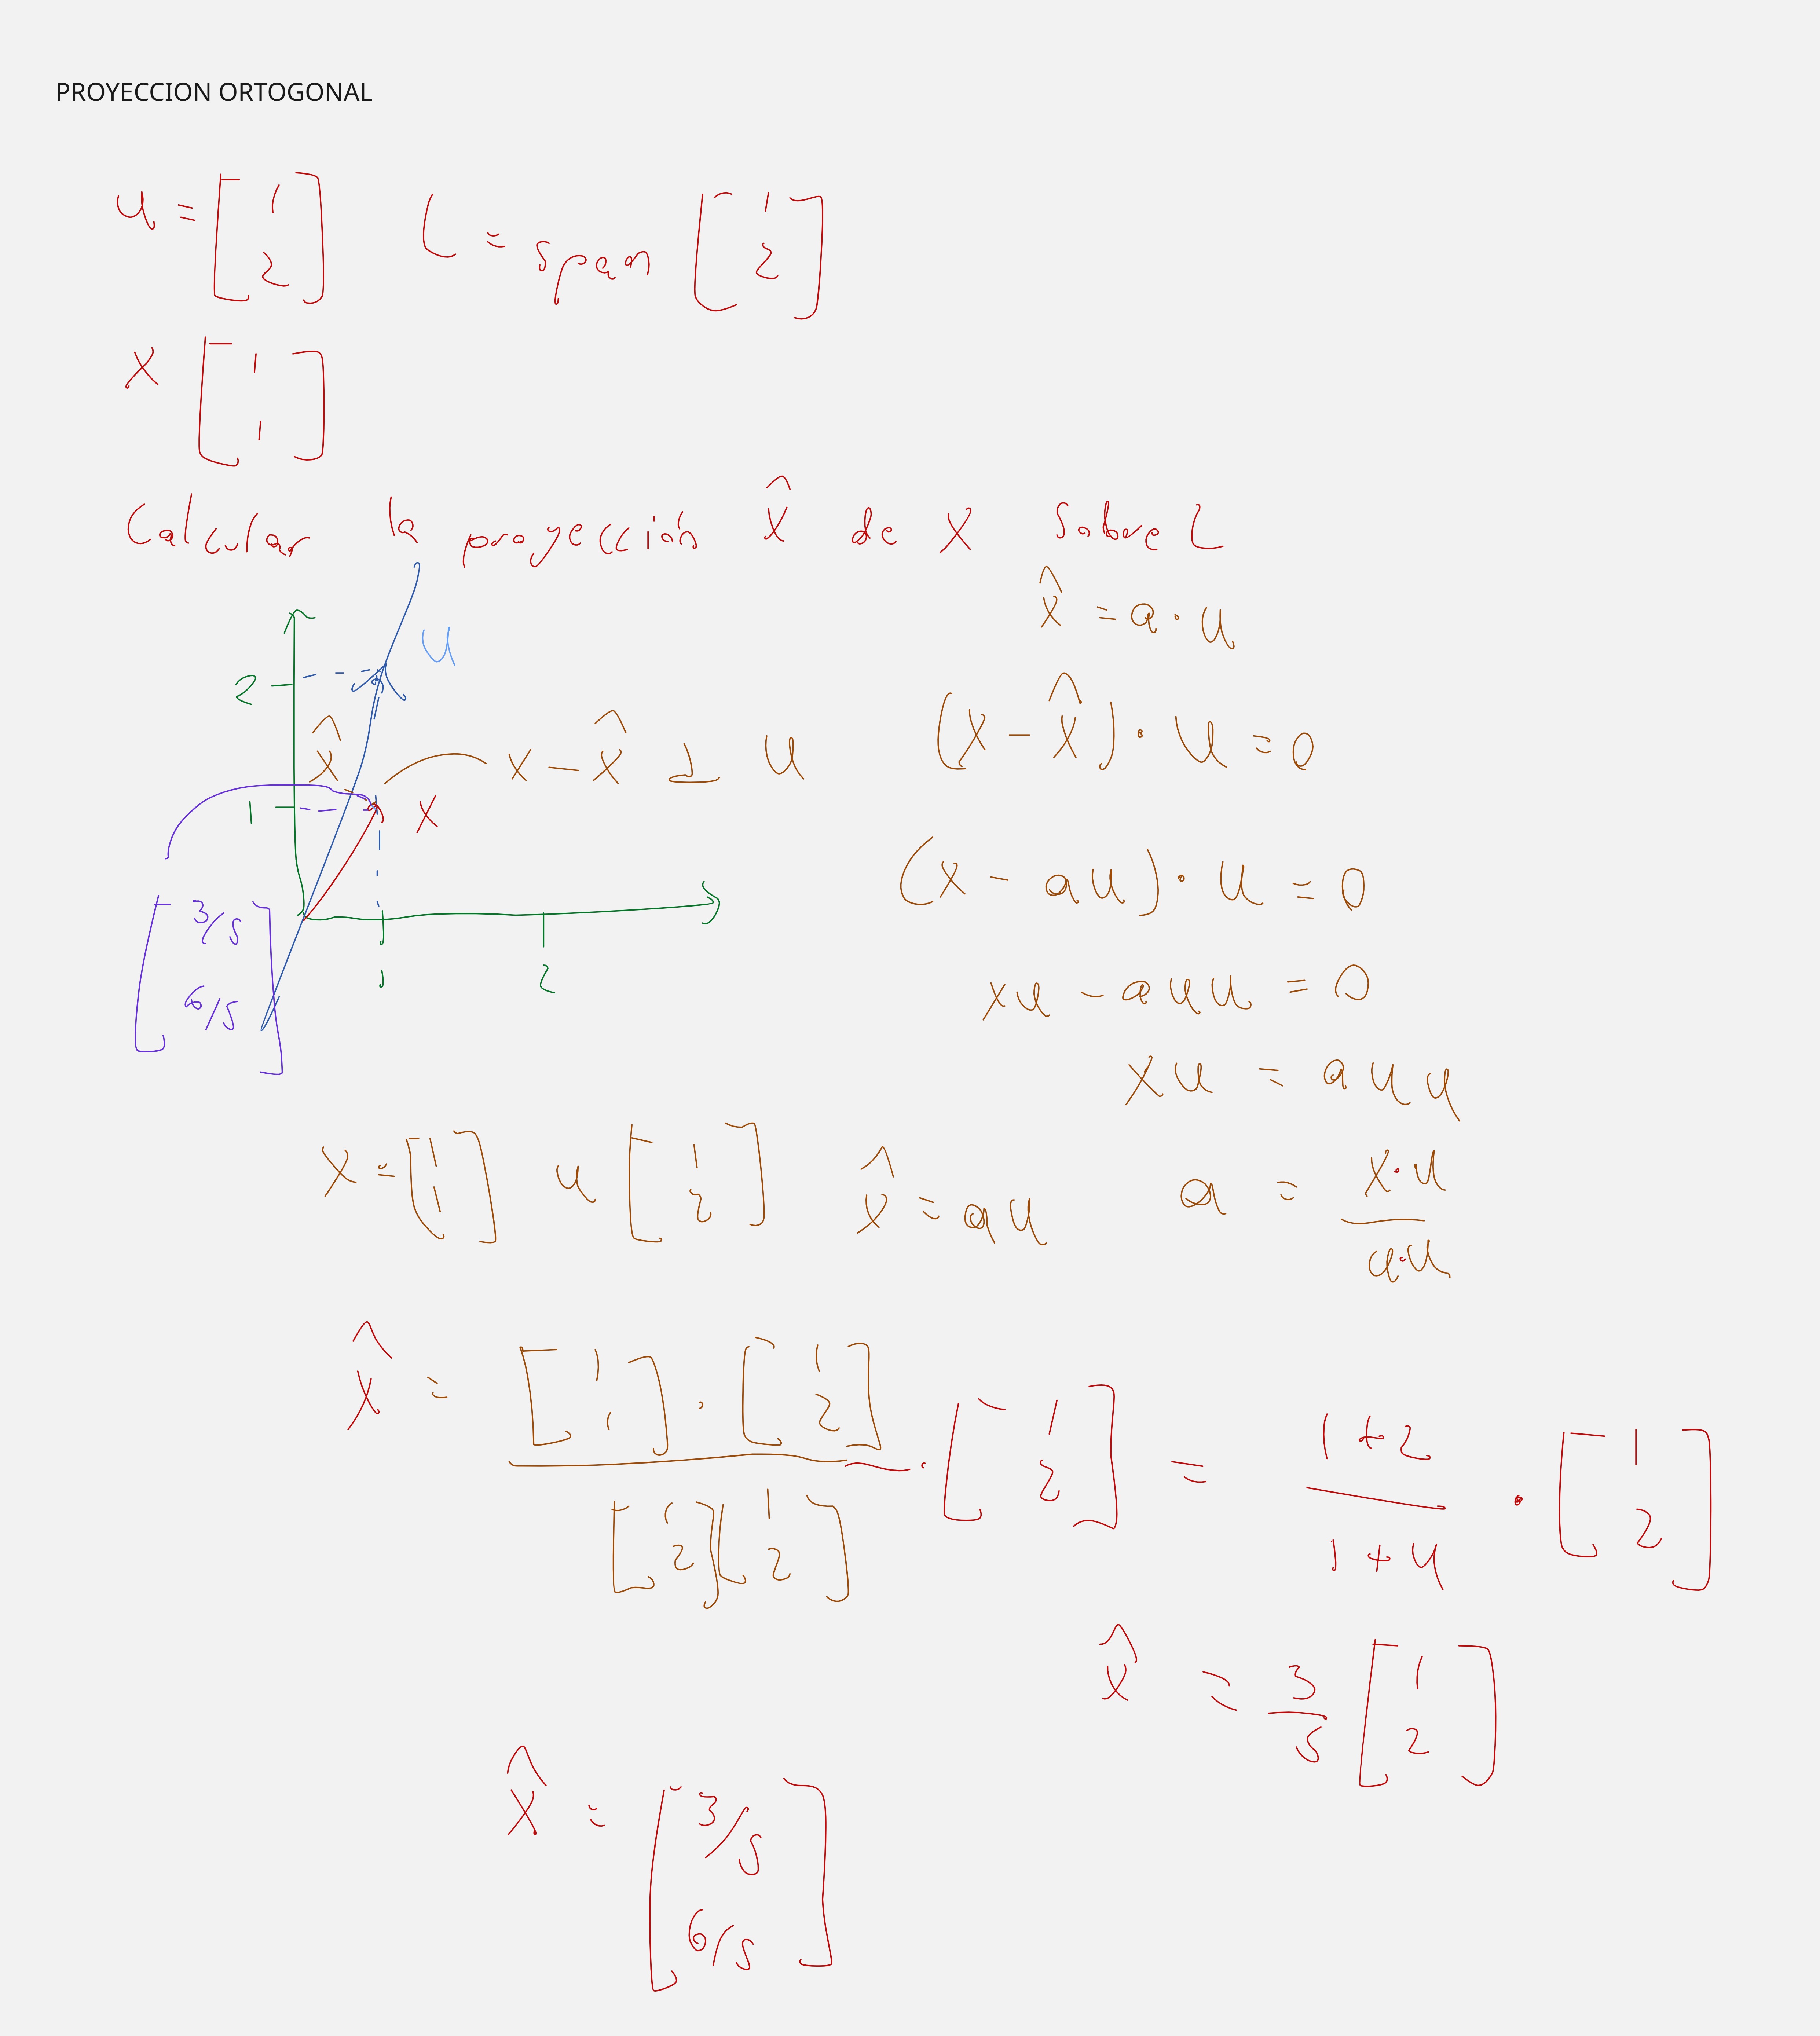 PROYECCION ORTOGONAL
u = [ 1 2 ] L = span [ 1 2 ]
X [ 1 1 ]
Calcular la proyección x̂ de X sobre L
x̂ = a · u
u
2
x̂ x - x̂ ⊥ u (x - x̂) · u = 0
1 x
(x - au) · u = 0
[ 3/5 6/5 ]
1 2
xu - auu = 0
xu = auu
x = [ 1 1 ] u [ 1 2 ] x̂ = au a = x·u / u·u
x̂ = [ 1 1 ] · [ 1 2 ] / [ 1 2 ] [ 1 2 ] · [ 1 2 ] = 1+2 / 1+4 · [ 1 2 ]
x̂ = 3/5 [ 1 2 ]
x̂ = [ 3/5 6/5 ]